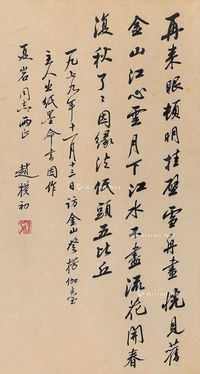 再来眼顿明挂壁雪舟画恍见旧
金山江心云月下江水不尽流花开春
复秋了了因缘法低头五比丘
一九七九年十一月十三日访金山登楞伽台室
主人出纸墨命书因作
同志两正
赵朴初